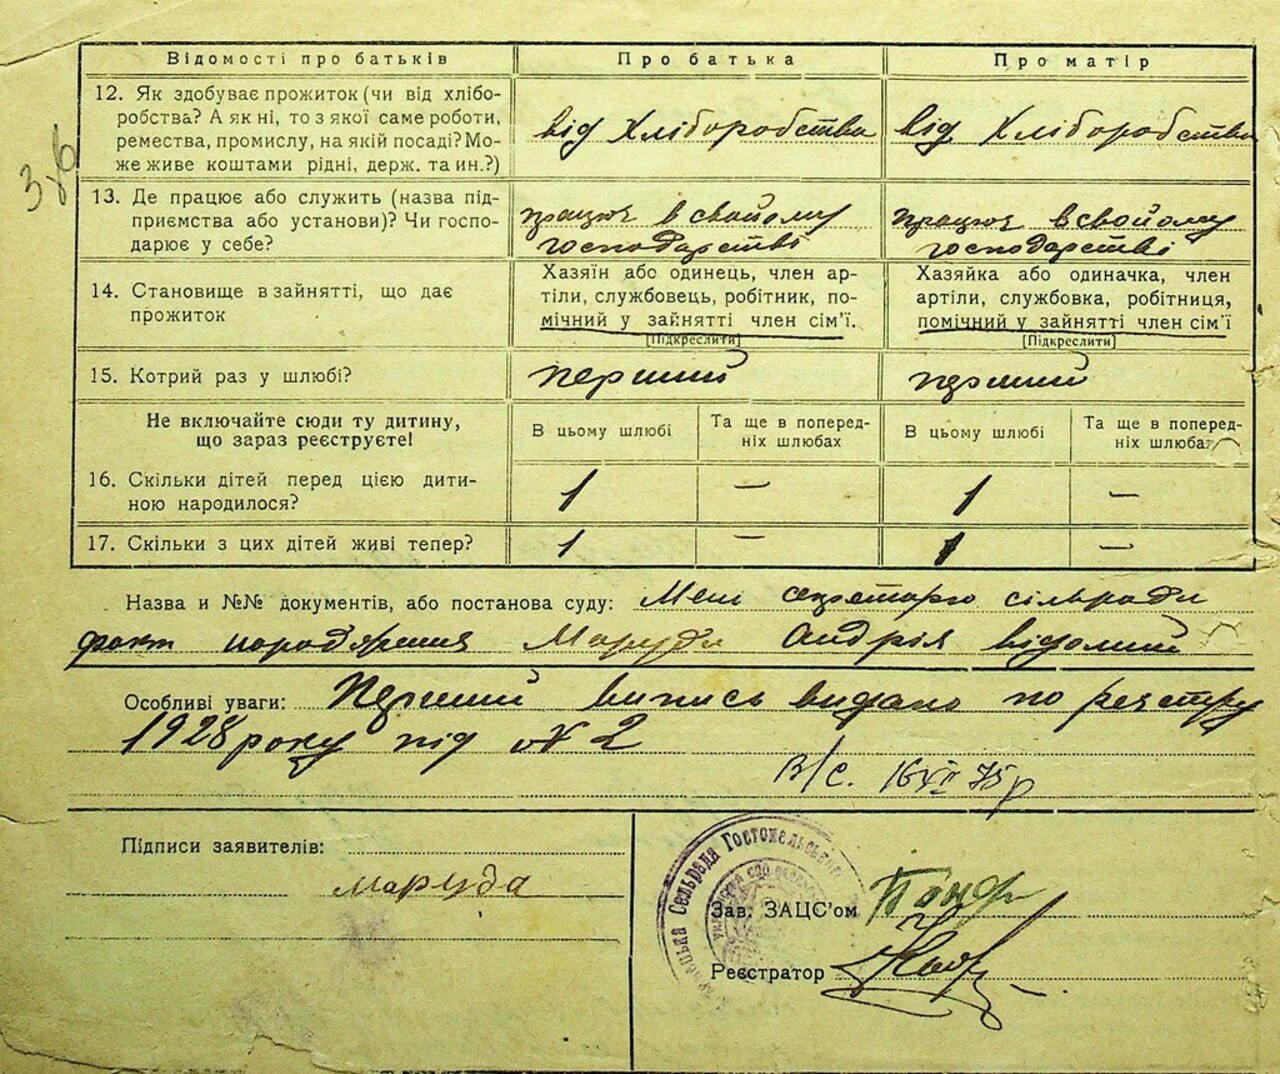 Відомості про батьків
Про батька
Про матір
12. Як здобуває прожиток (чи від хлібо-
робства? А як ні, то з якої саме роботи,
ремества, промислу, на якій посаді? Мо-
же живе коштами рідні, держ. та ин.?)
від хліборобства
від хліборобства
13. Де працює або служить (назва під-
приємства або установи)? Чи госпо-
дарює у себе?
працює в свойому
господарстві
працює в свойому
господарстві
14. Становище в зайнятті, що дає
прожиток
Хазяїн або одинець, член ар-
тіли, службовець, робітник, по-
мічний у зайнятті член сім'ї.
[Підкреслити]
Хазяйка або одиначка, член
артіли, службовка, робітниця,
помічний у зайнятті член сім'ї
[Підкреслити]
15. Котрий раз у шлюбі?
перший
перший
Не включайте сюди ту дитину,
що зараз реєструєте!
В цьому шлюбі
Та ще в поперед-
ніх шлюбах
В цьому шлюбі
Та ще в поперед-
ніх шлюбах
16. Скільки дітей перед цією дити-
ною народилося?
1
—
1
—
17. Скільки з цих дітей живі тепер?
1
—
1
—
Назва и №№ документів, або постанова суду: Мені секретарю сільради
факт народження Маруди Андрія відомий
Особливі уваги: Перший випись видано по реєстру
1928 року під № 2
В/с. 16 XII 75 р
Підписи заявителів:
Маруда
Сельрада Гостомельського
Зав. ЗАЦС'ом
Реєстратор